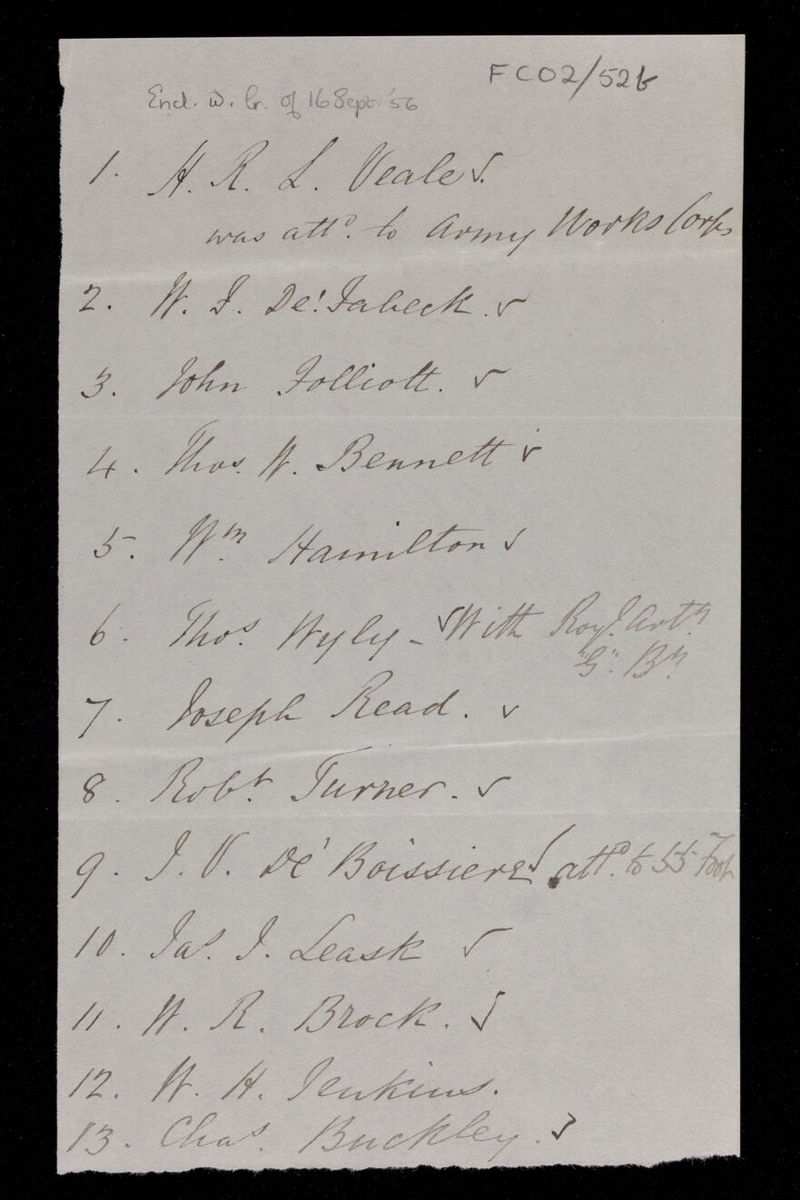 FCO2/52b
Encl. w. lr. of 16 Sept. '56
1. H. R. L. Veale √.
was attd. to Army Works Corps
2. W. F. De'Fabeck. √
3. John Folliott. √
4. Thos. W. Bennett √
5. Wm. Hamilton √
6. Thos. Wyly - √ With Royl. Arty.
"G". Bn.
7. Joseph Read. √
8. Robt. Turner. √
9. J. V. De' Boissiere √ attd. to 55 Foot
10. Jas. J. Leask √
11. W. R. Brock. √
12. W. H. Jenkins.
13. Chas. Buckley. √